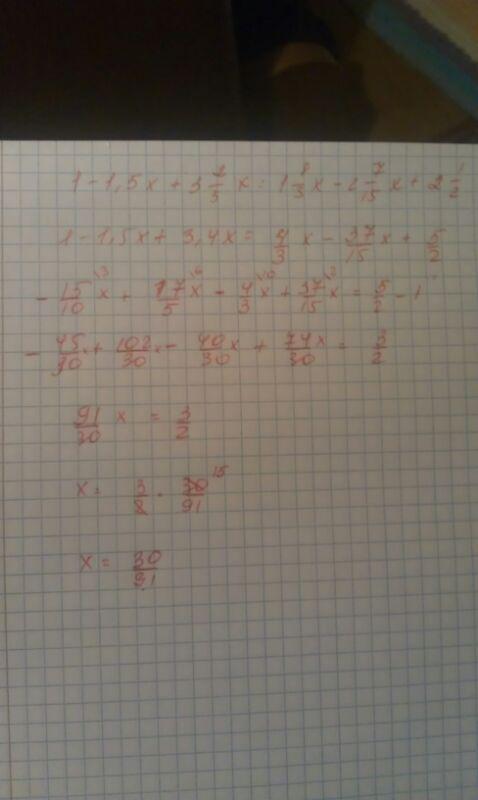 1 - 1,5x + 3 2/5 x = 1 1/3 x - 2 7/15 x + 2 1/2
1 - 1,5x + 3,4x = 4/3 x - 37/15 x + 5/2
- 15/10 \3 x + 17/5 \6 x - 4/3 \10 x + 37/15 \2 x = 5/2 - 1
- 45/30 x + 102/30 x - 40/30 x + 74x/30 = 3/2
91/30 x = 3/2
x = 3/2 · 30/91 15
x = 30/91